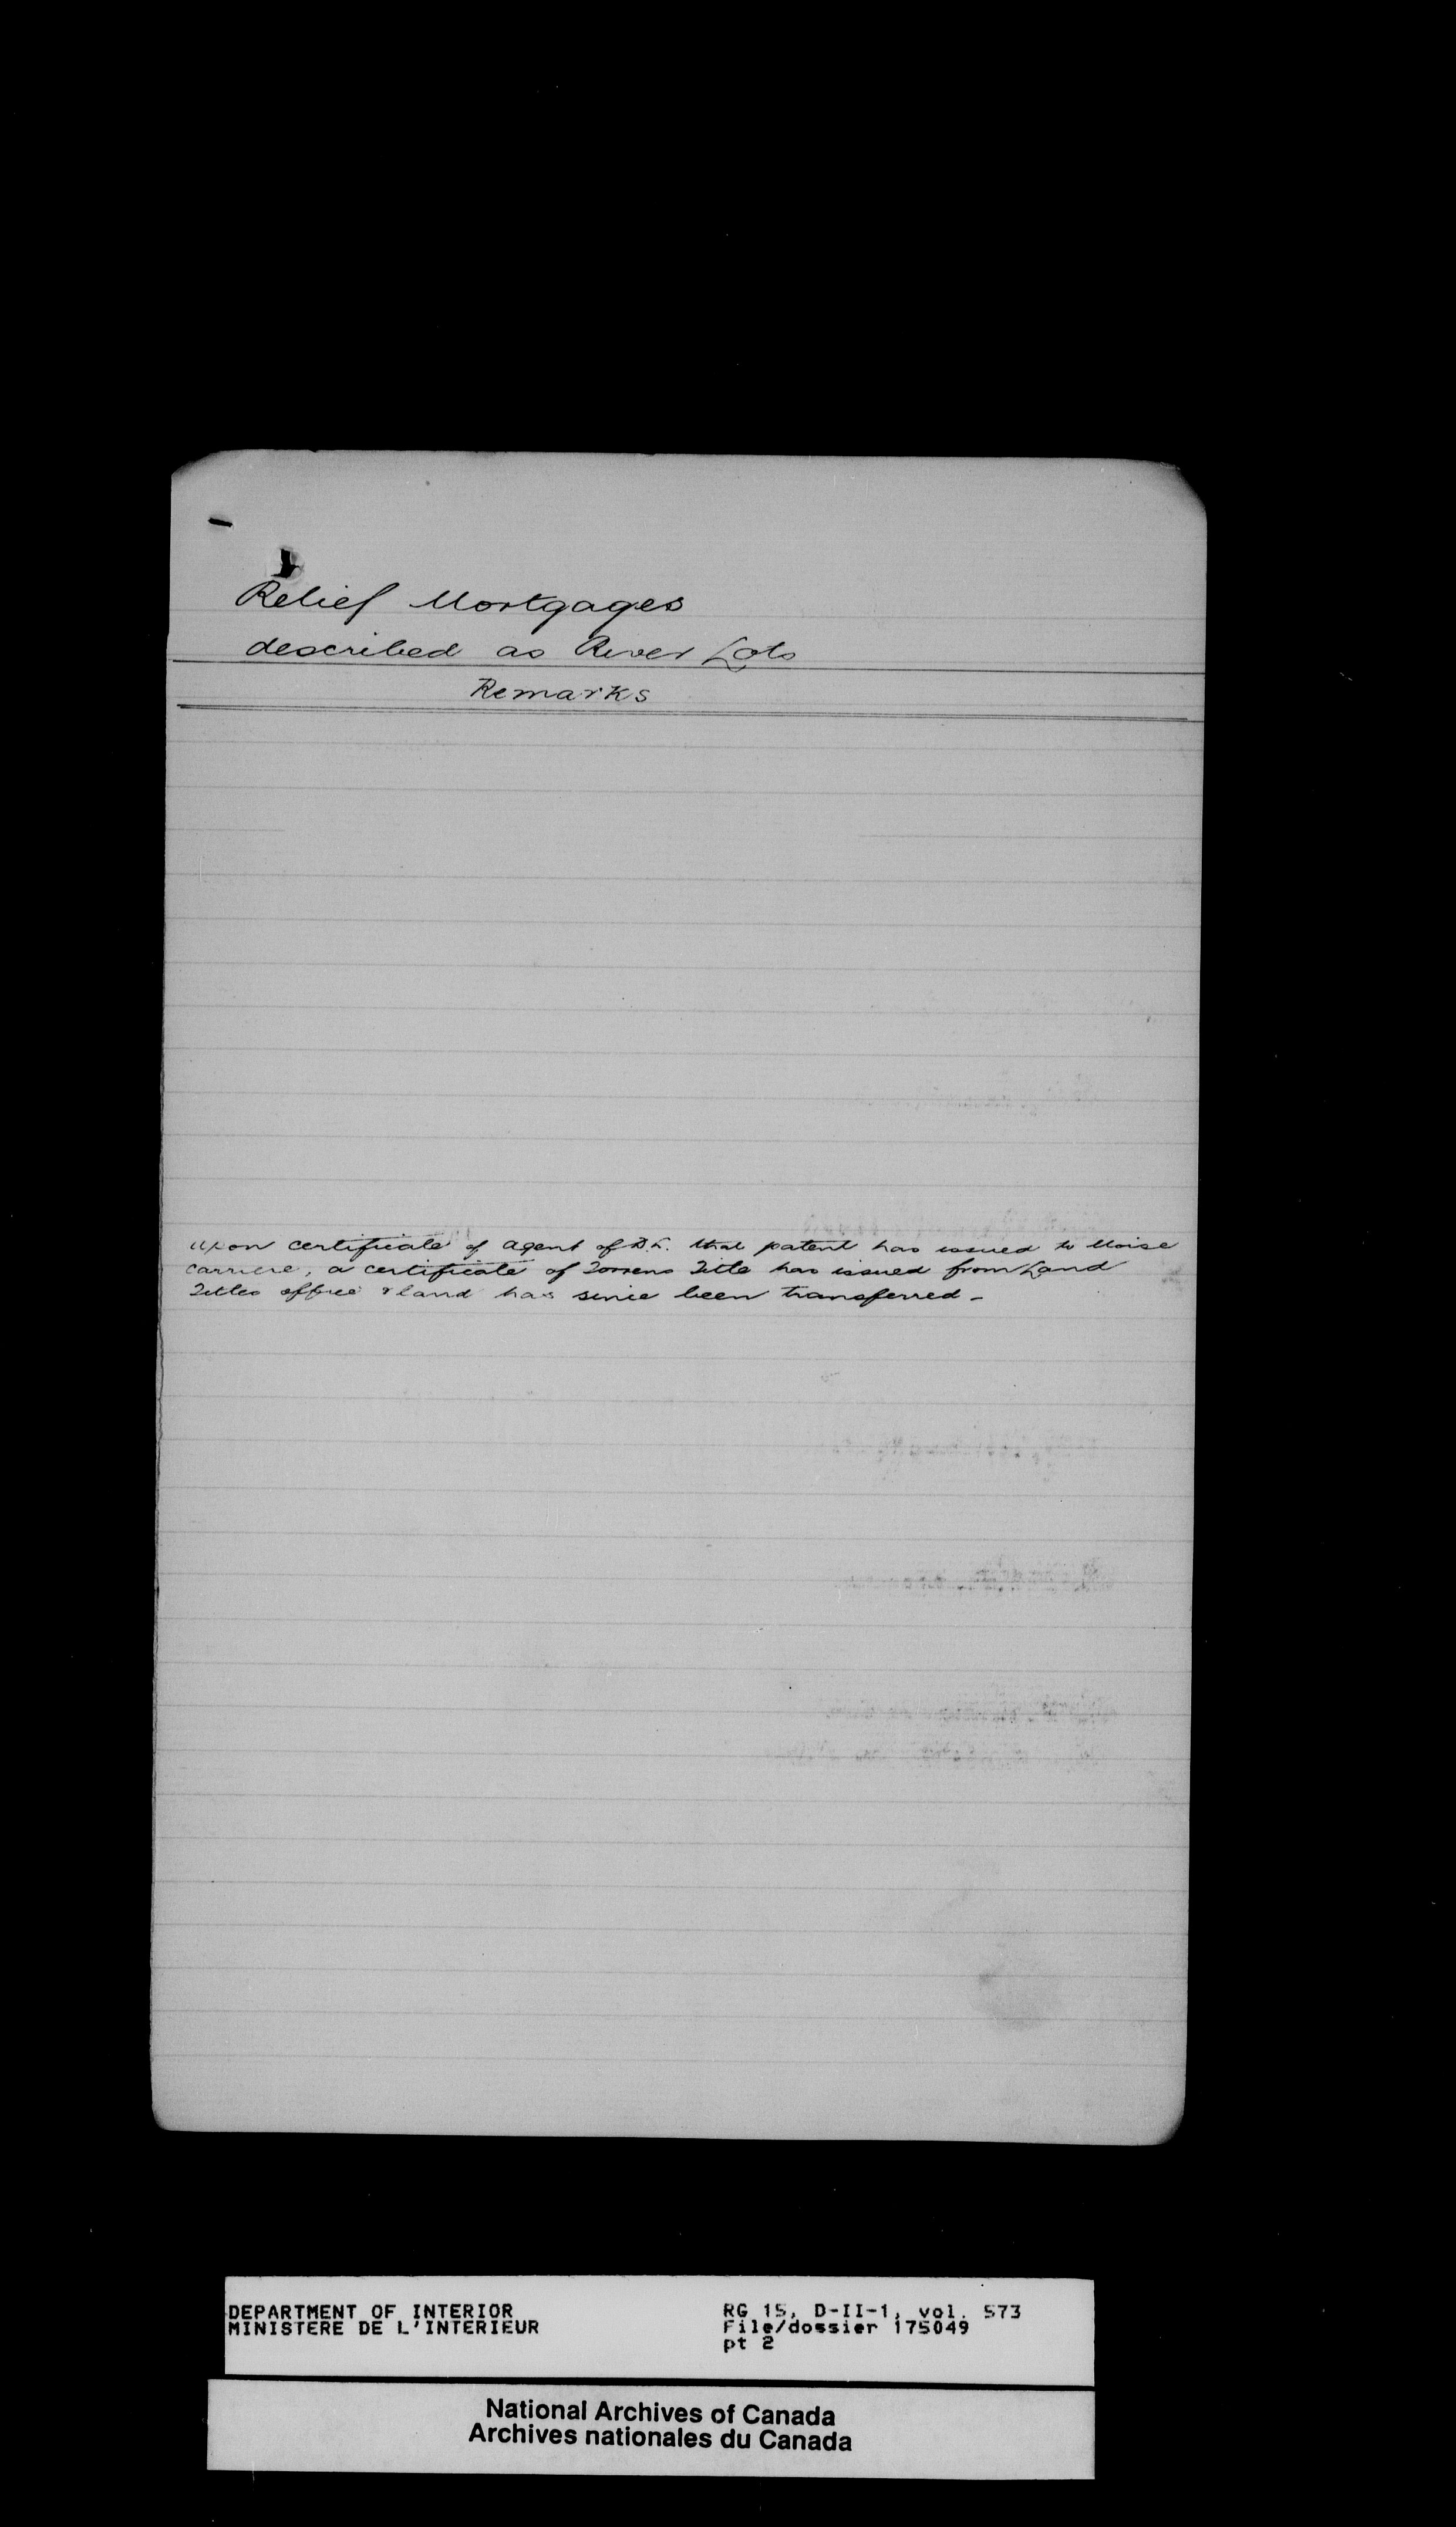 Relief Mortgages
described as River Lots
Remarks
Upon certificate of agent of D.L. that patent has issued to Moise
Carriere, a certificate of Torrens Title has issued from Land
Titles office & land has since been transferred -
DEPARTMENT OF INTERIOR
MINISTERE DE L'INTERIEUR
RG 15, D-II-1, vol. 573
File/dossier 175049
pt 2
National Archives of Canada
Archives nationales du Canada